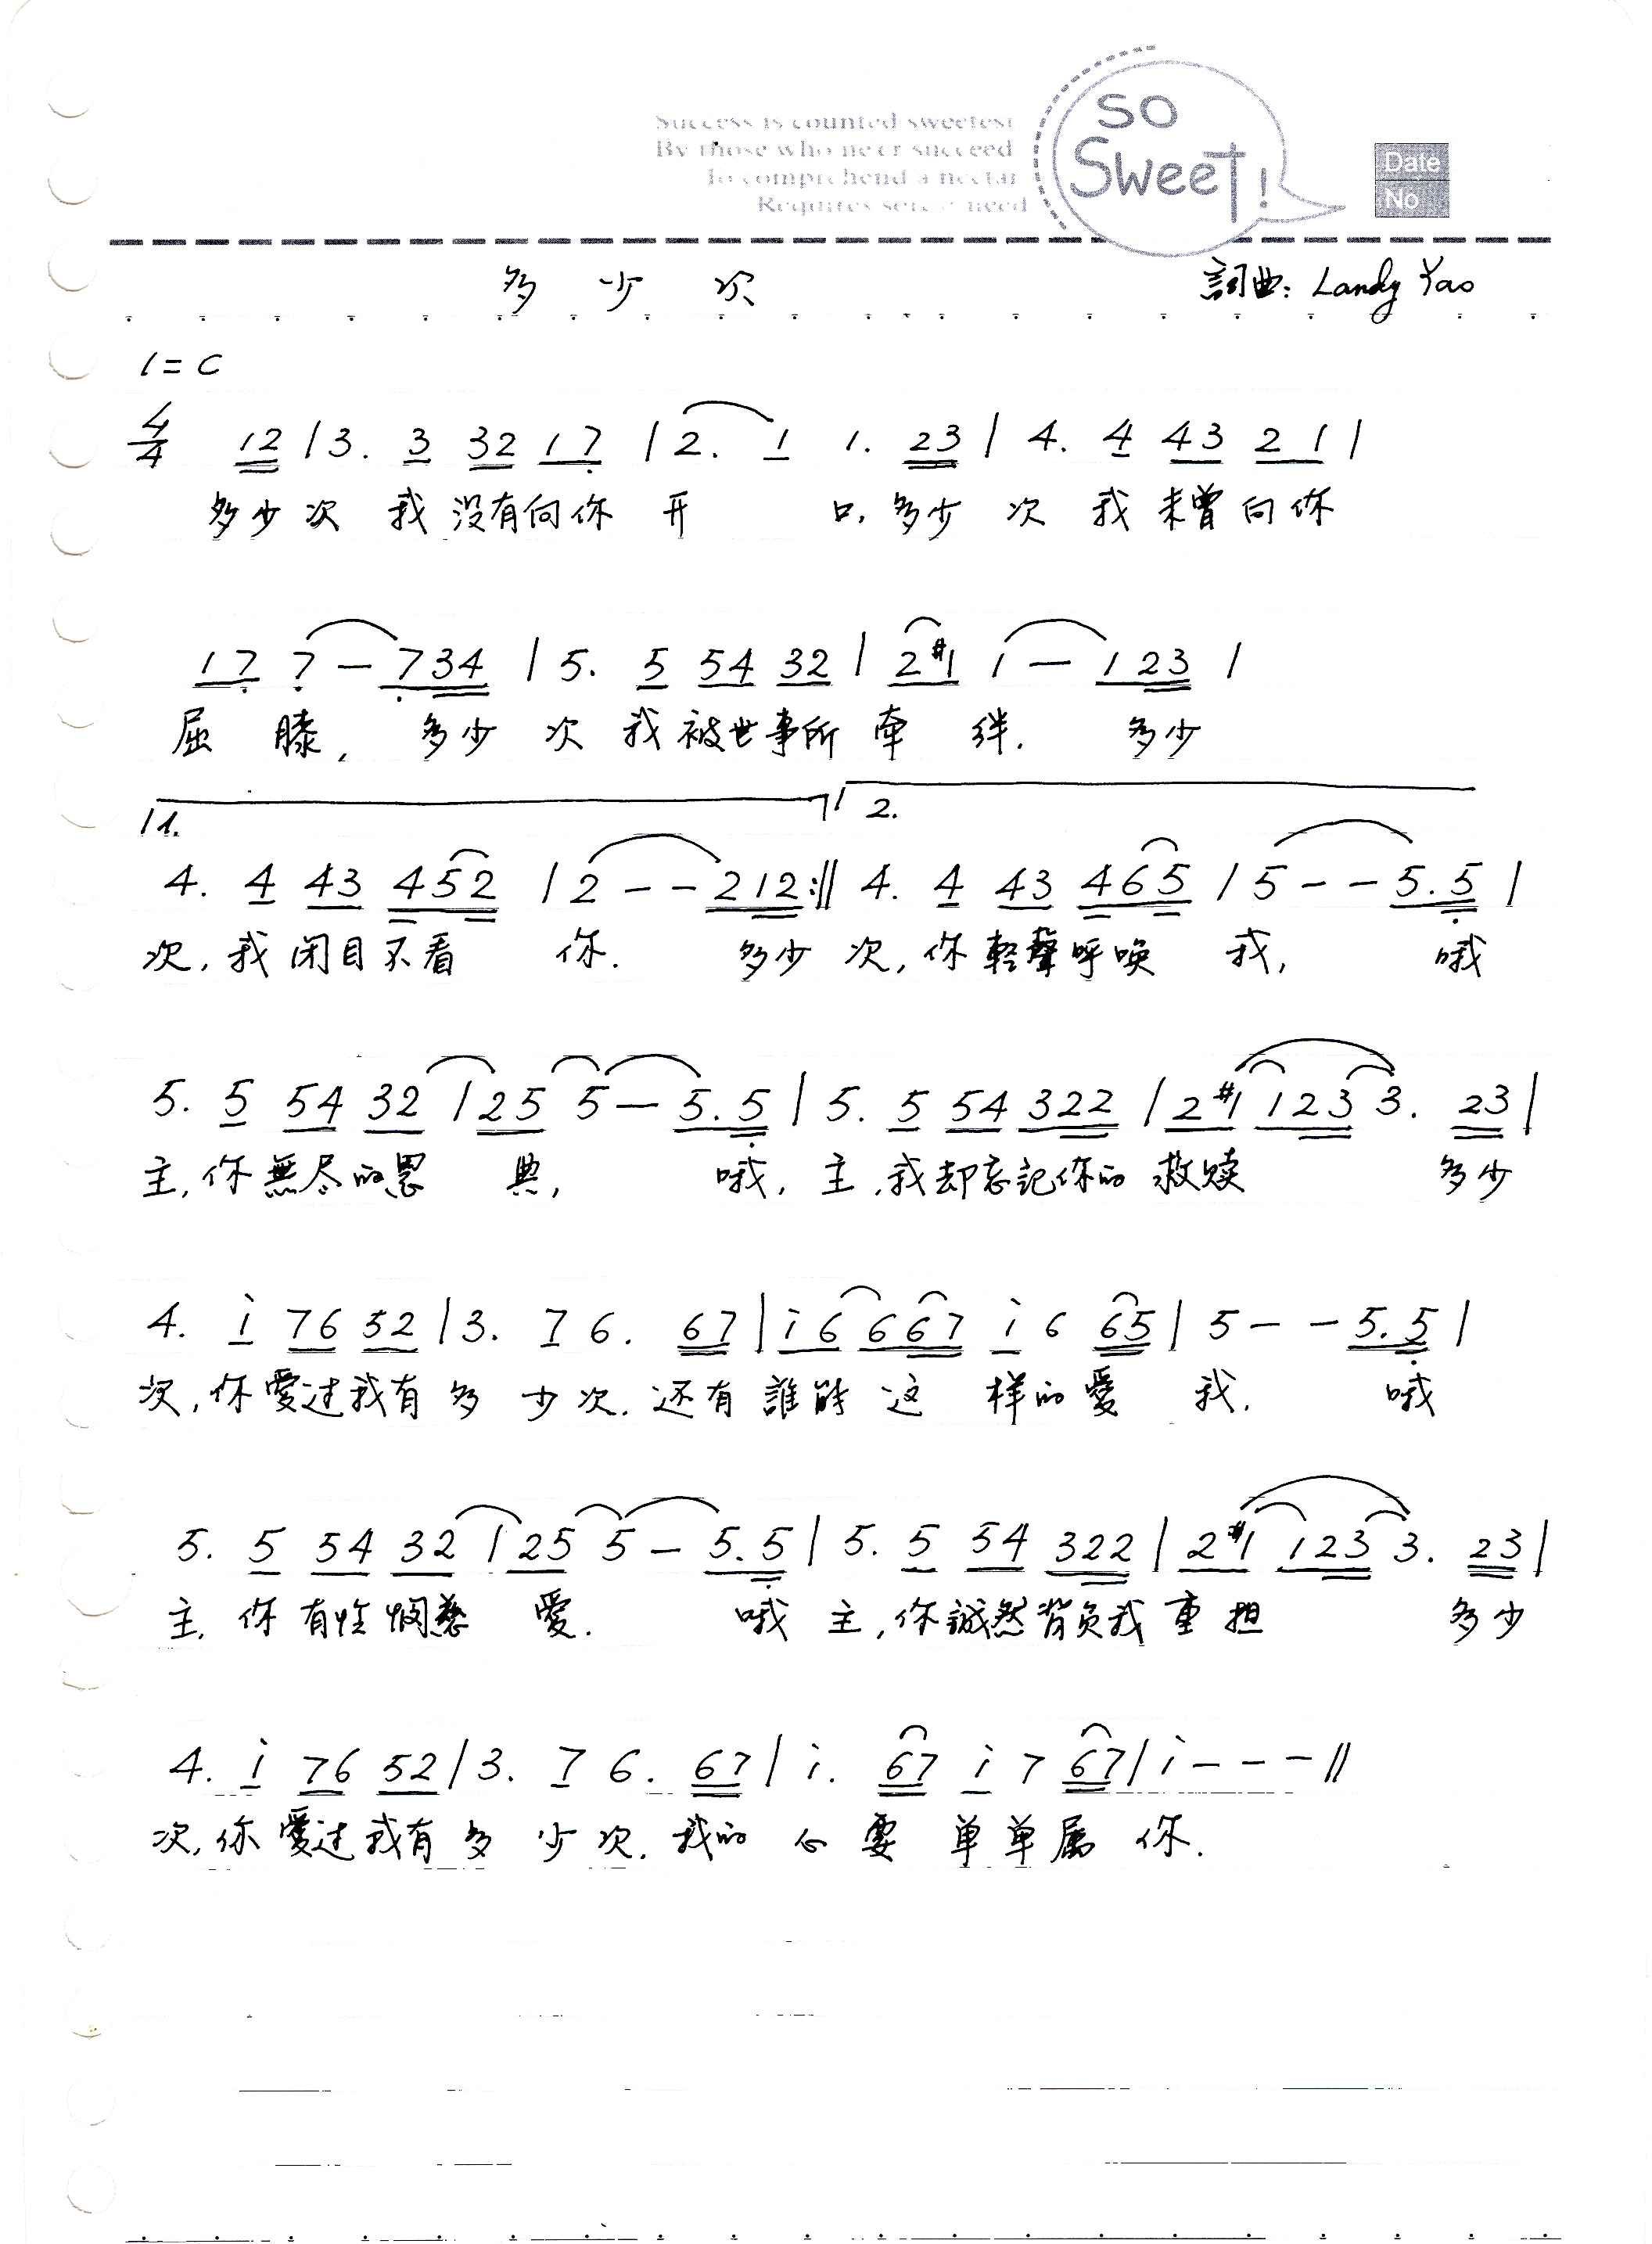 Success is counted sweetest
By those who ne'er succeed
To comprehend a nectar
Requires sorest need
SO
Sweet!
Date
No
多少次
詞曲: Landy Yao
1=C
4/4 12 | 3. 3 32 17 | 2. 1 1. 23 | 4. 4 43 21 |
多少次 我没有向你 开 口, 多少 次 我 未曾向你
17 7 — 734 | 5. 5 54 32 | 2#1 1 — 123 |
屈 膝, 多少 次 我被世事所 牵 绊. 多少
1. 2.
4. 4 43 452 | 2 - - 212 :|| 4. 4 43 465 | 5 - - 5.5 |
次, 我闭目不看 你. 多少 次, 你輕聲呼唤 我, 哦
5. 5 54 32 | 25 5 — 5.5 | 5. 5 54 322 | 2#1 123 3. 23 |
主, 你無尽的恩 典, 哦, 主, 我却忘記你的 救赎 多少
4. i 76 52 | 3. 7 6. 67 | i6 667 i 6 65 | 5 - - 5.5 |
次, 你愛过我有 多 少次. 还有 誰能 这 样的愛 我. 哦
5. 5 54 32 | 25 5 — 5.5 | 5. 5 54 322 | 2#1 123 3. 23 |
主, 你 有怜悯慈 愛. 哦 主, 你誠然背负我 重担 多少
4. i 76 52 | 3. 7 6. 67 | i. 67 i 7 67 | i - - - ||
次, 你愛过我有 多 少 次. 我的 心 要 单单属 你.